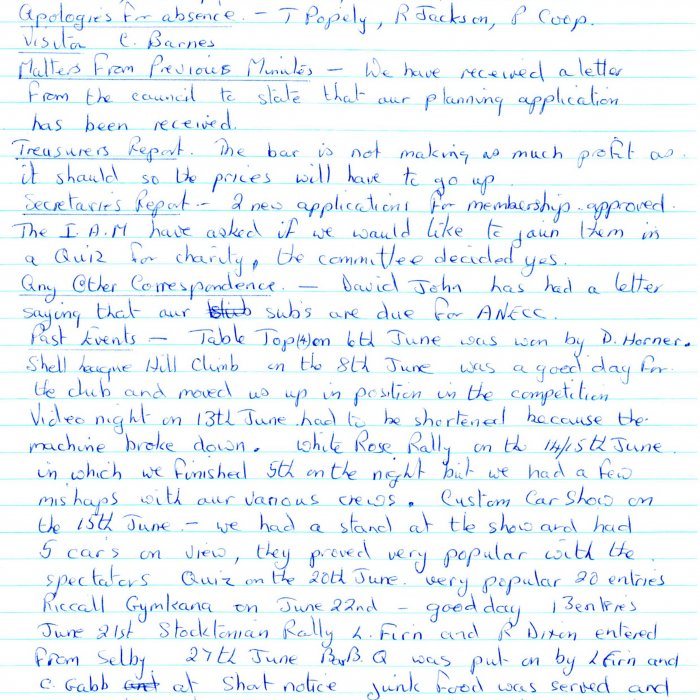 Apologies for absence. - T Popely, R Jackson, P Coop.
Visitor C. Barnes
Matters From Previous Minutes - We have received a letter
from the council to state that our planning application
has been received.
Treasurers Report. The bar is not making as much profit as
it should so the prices will have to go up
Secretaries Report - 2 new applications for membership approved.
The I.A.M have asked if we would like to join them in
a Quiz for charity, the committee decided yes.
Any Other Correspondence. - David John has had a letter
saying that our subs are due for ANECC.
Past Events - Table Top(4) on 6th June was won by D. Horner.
Shell league Hill Climb on the 8th June was a good day for
the club and moved us up in position in the competition
Video night on 13th June had to be shortened because the
machine broke down. White Rose Rally on the 14/15th June
in which we finished 5th on the night but we had a few
mishaps with our various crews. Custom Car Show on
the 15th June - we had a stand at the show and had
5 cars on view, they proved very popular with the
spectators Quiz on the 20th June. very popular 20 entries
Riccall Gymkana on June 22nd - good day 13 entries
June 21st Stocktonian Rally L. Firn and R Dixon entered
from Selby 27th June Bar B. Q was put on by L Firn and
C. Gabb at short notice junk food was served and